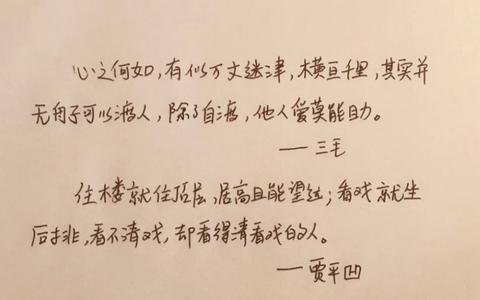 心之何如,有似万丈迷津,横亘千里,其实并
无舟子可以渡人,除了自渡,他人爱莫能助。
——三毛
住楼就住顶层,居高且能望远;看戏就坐
后排,看不清戏,却看得清看戏的人。
——贾平凹